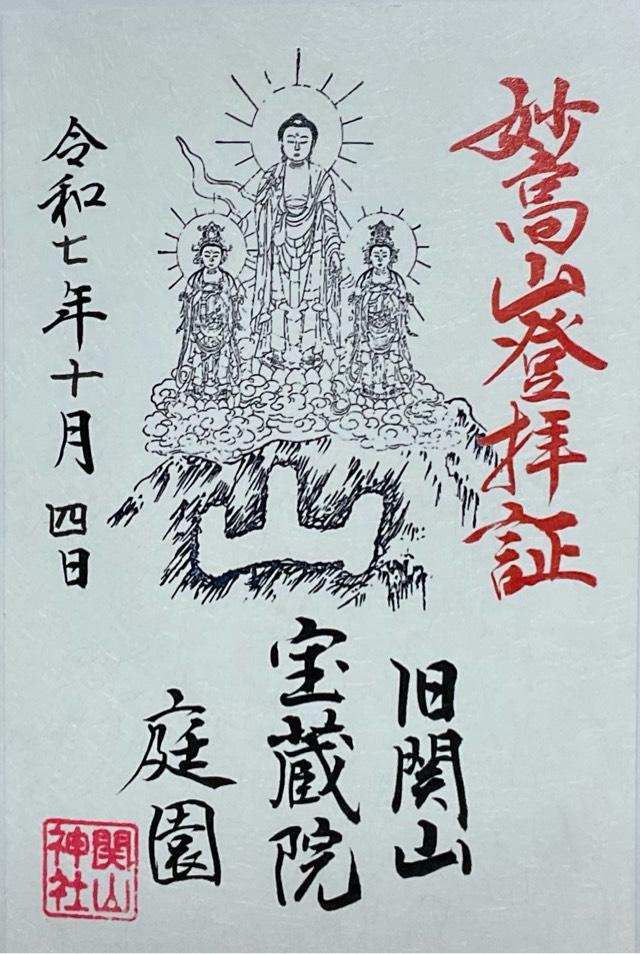 妙高山登拝証
山
令和七年十月四日
旧関山
宝蔵院
庭園
関山
神社